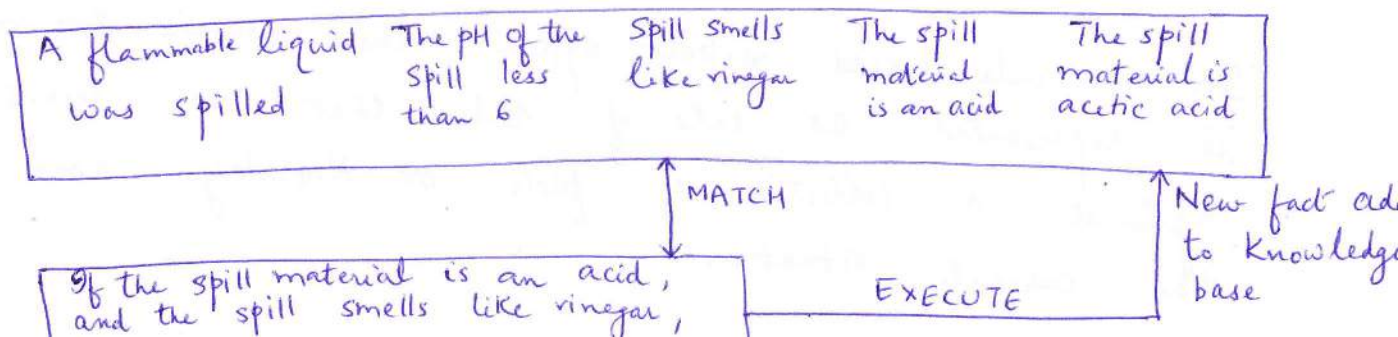 A flammable liquid was spilled
The pH of the spill less than 6
Spill smells like vinegar
The spill material is an acid
The spill material is acetic acid
MATCH
New fact ad
to Knowledge
base
If the spill material is an acid,
and the spill smells like vinegar,
EXECUTE